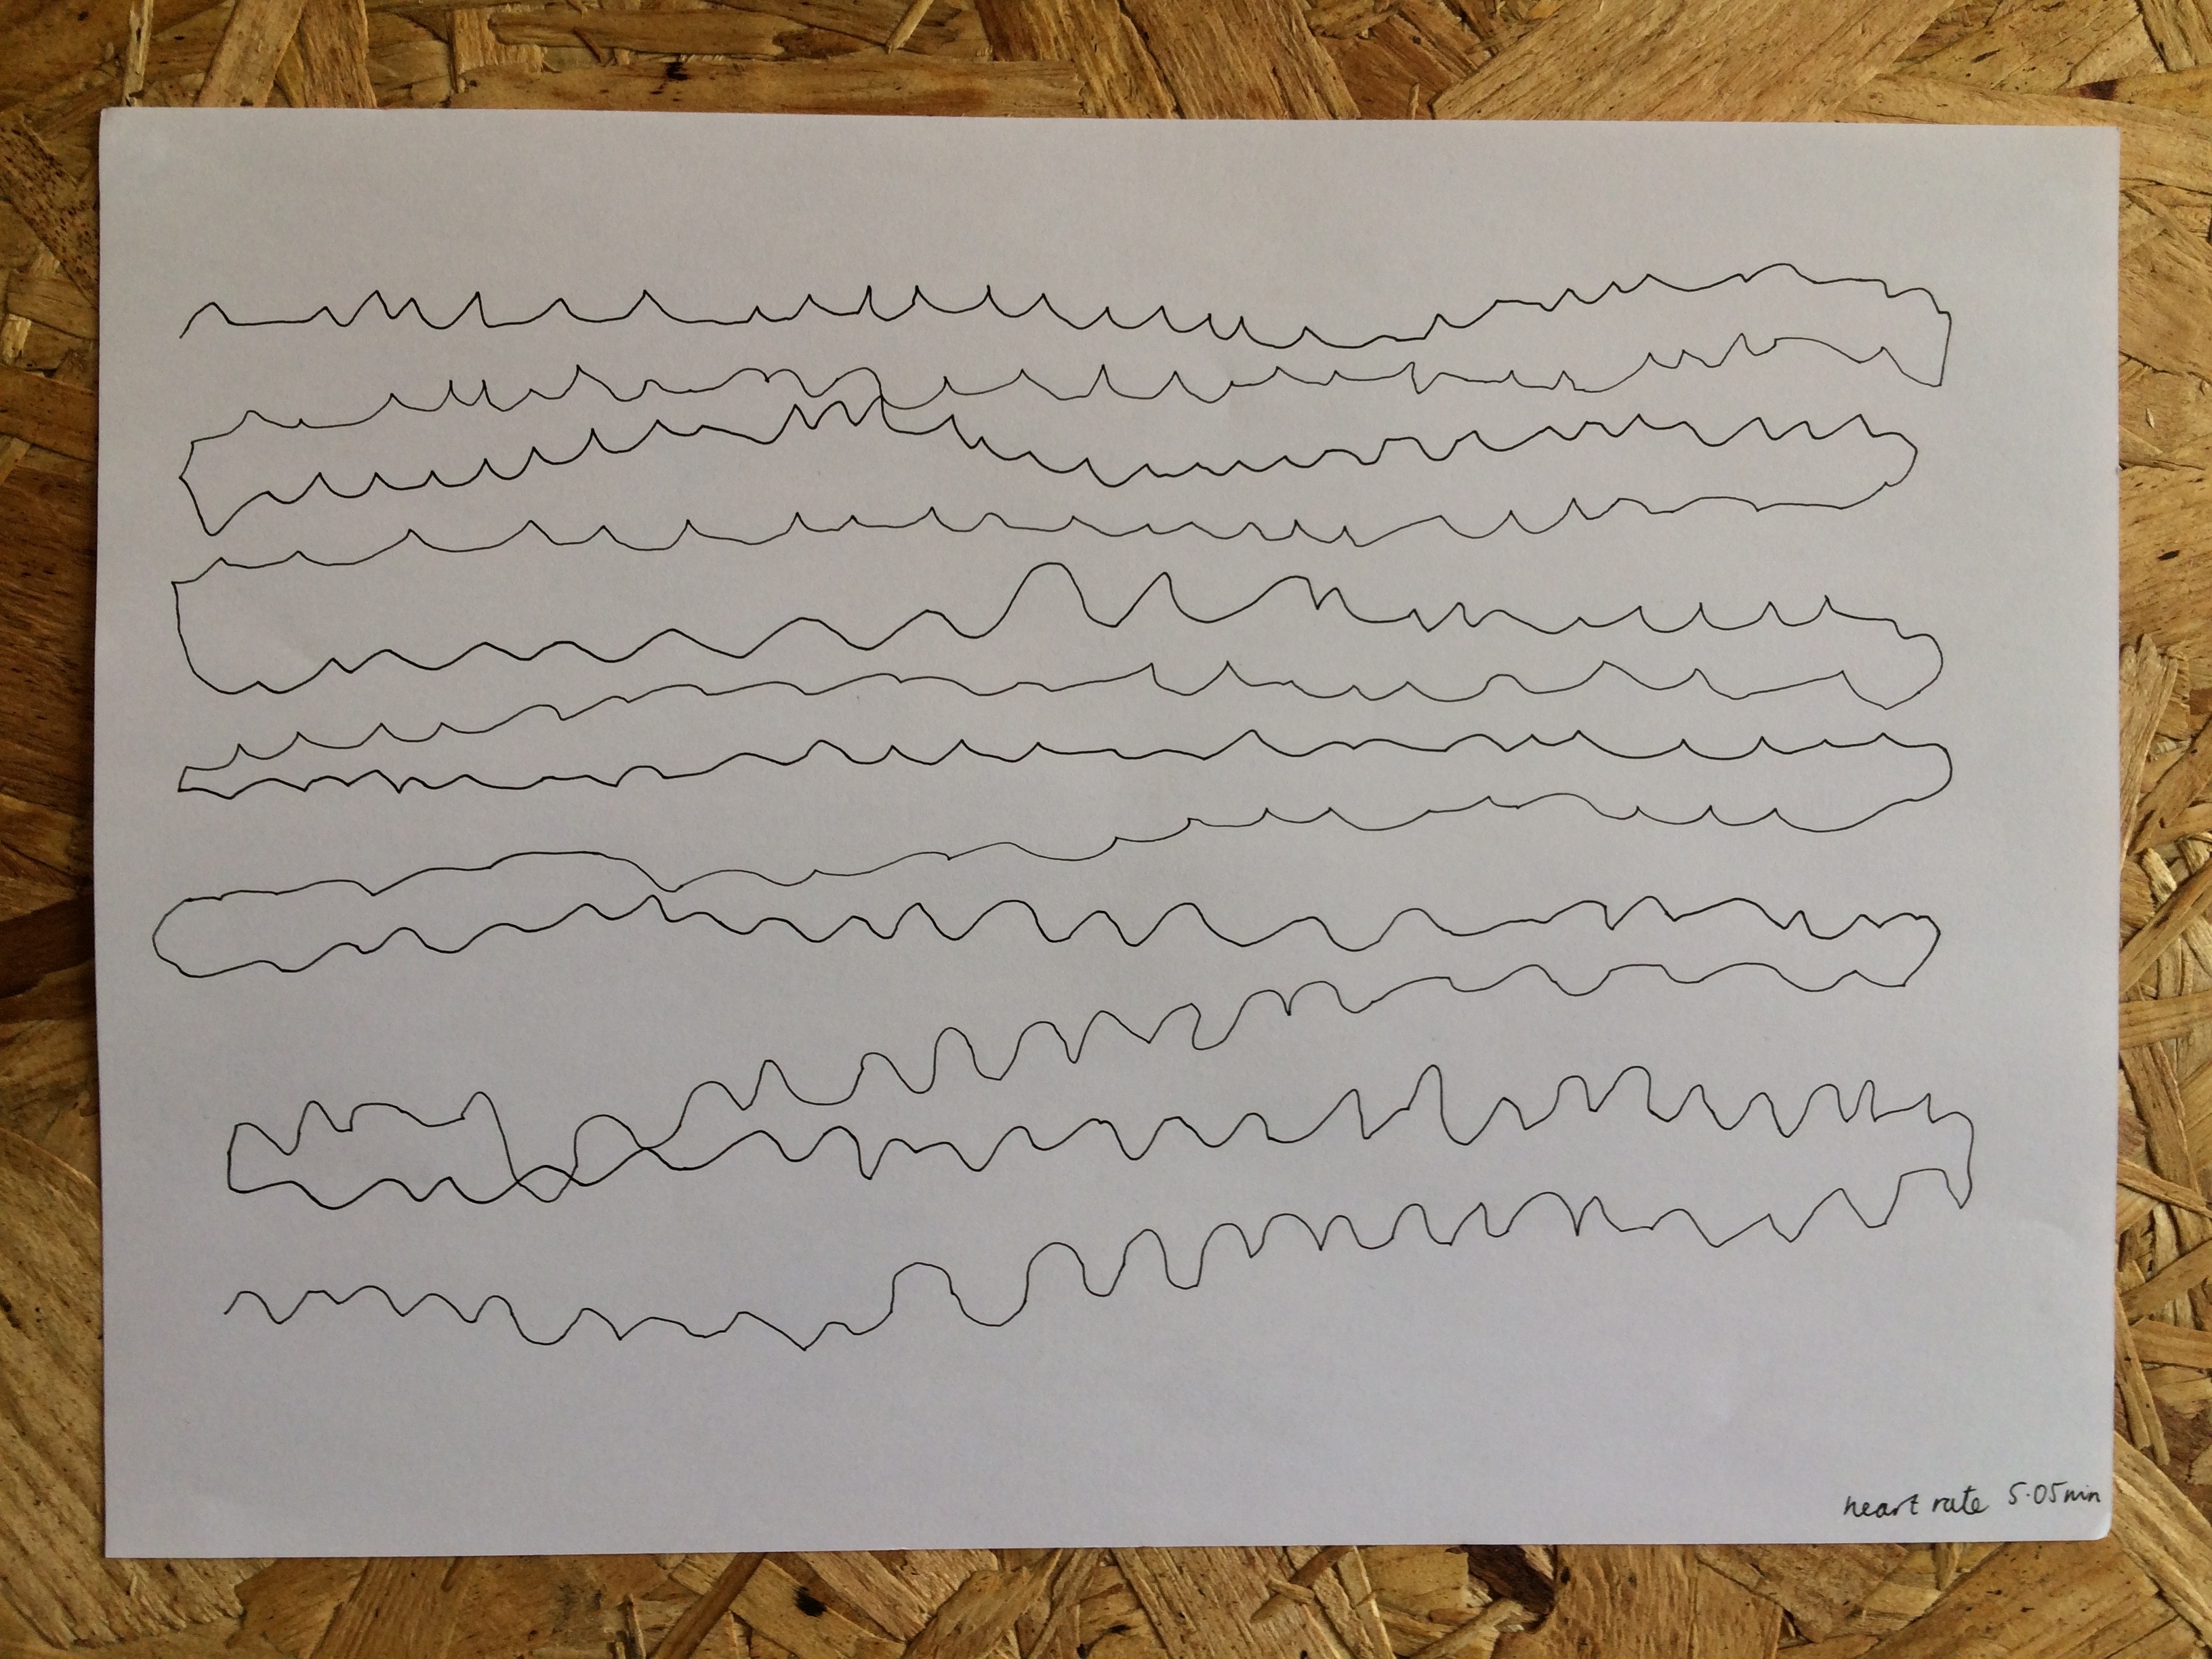 heart rate 5.05min